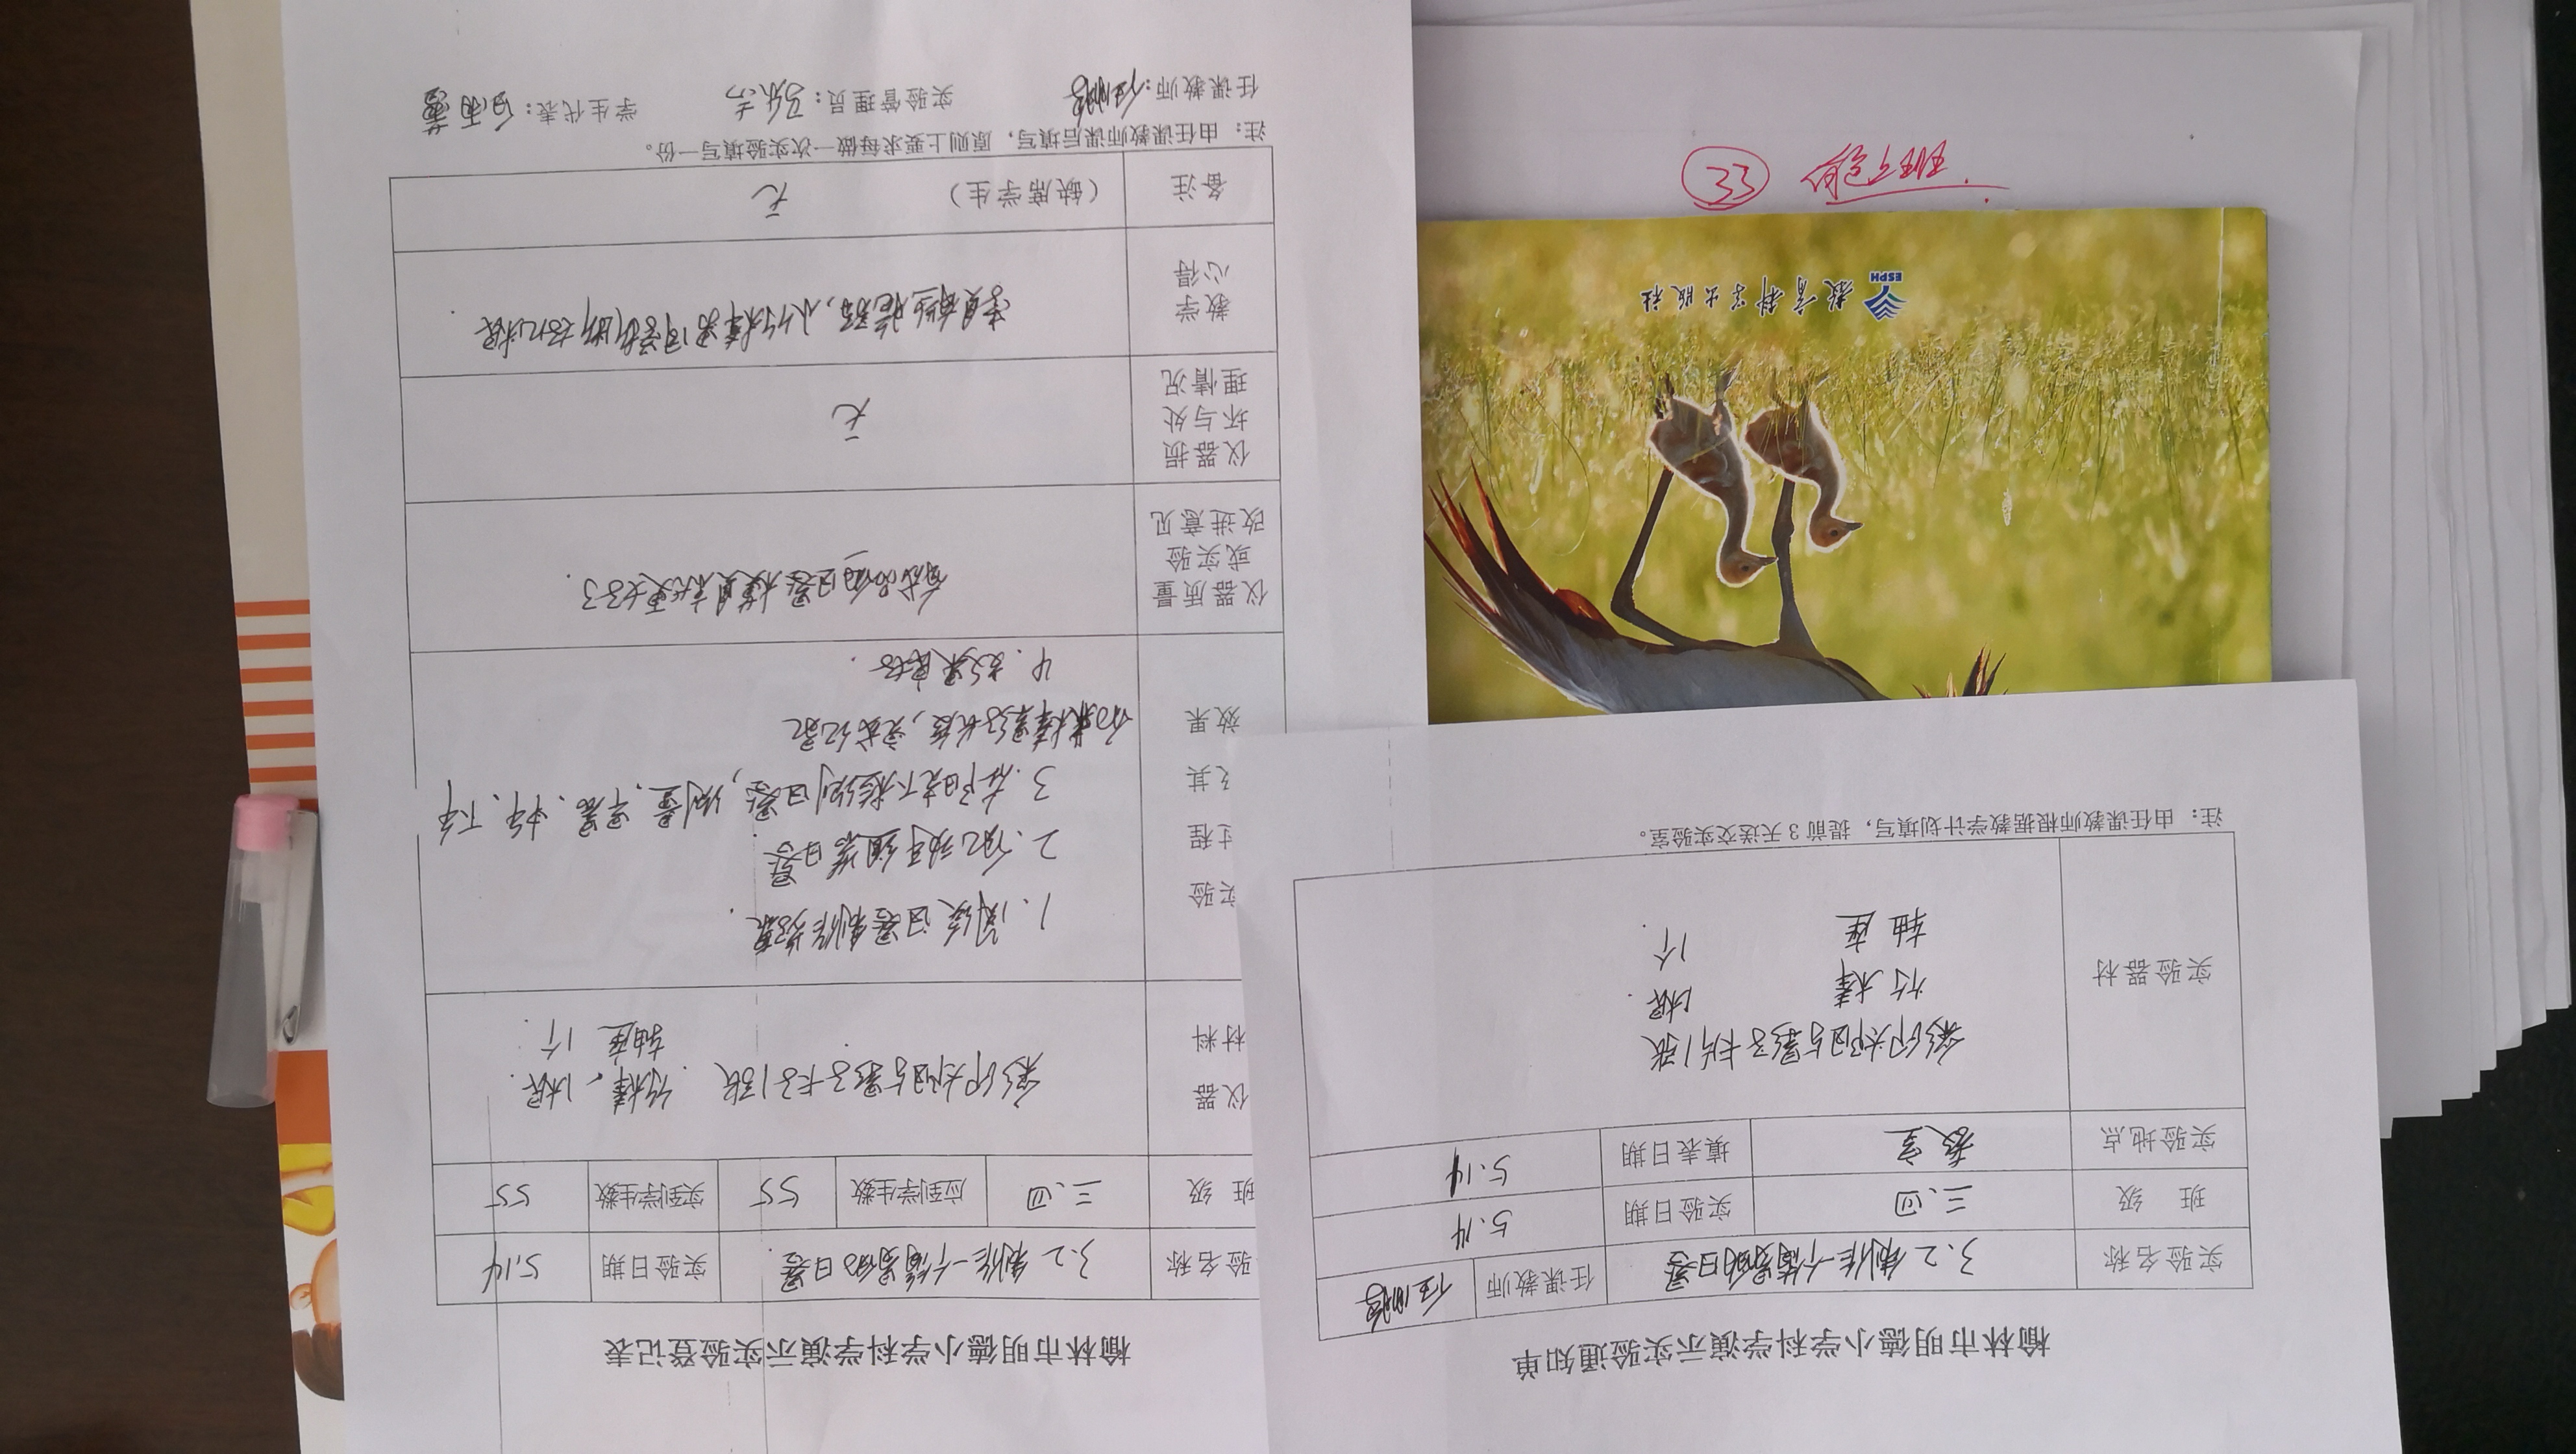 榆林市明德小学科学演示实验通知单
实验名称 3.2 制作一个简易的日晷 任课教师
班 级 三、四 实验日期 5.14
实验地点 教室 填表日期 5.14
实验器材 彩印太阳与影子卡片1张
竹棒 1根
轴座 1个
注：由任课教师根据教学计划填写，提前3天送交实验室。
榆林市明德小学科学演示实验登记表
验名称 3.2 制作一个简易的日晷 实验日期 5.14
班 级 三、四 应到学生数 55 实到学生数 55
仪器
材料
彩印太阳与影子卡片1张 竹棒、1根
轴座 1个
实验
过程
及其
效果
1.阅读日晷制作
2.动手组装日晷
3.在阳光下 日晷，测量、早晨、中午、下午
长度，完成记录
4.效果良好.
仪器质量
或实验
改进意见
有成品的日晷模具就更好了.
仪器损
坏与处
理情况
无
教学
心得
备注 （缺席学生） 无
注：由任课教师课后填写，原则上要求每做一次实验填写一份。
任课教师： 实验管理员： 学生代表：
教育科学出版社
ESPH
33